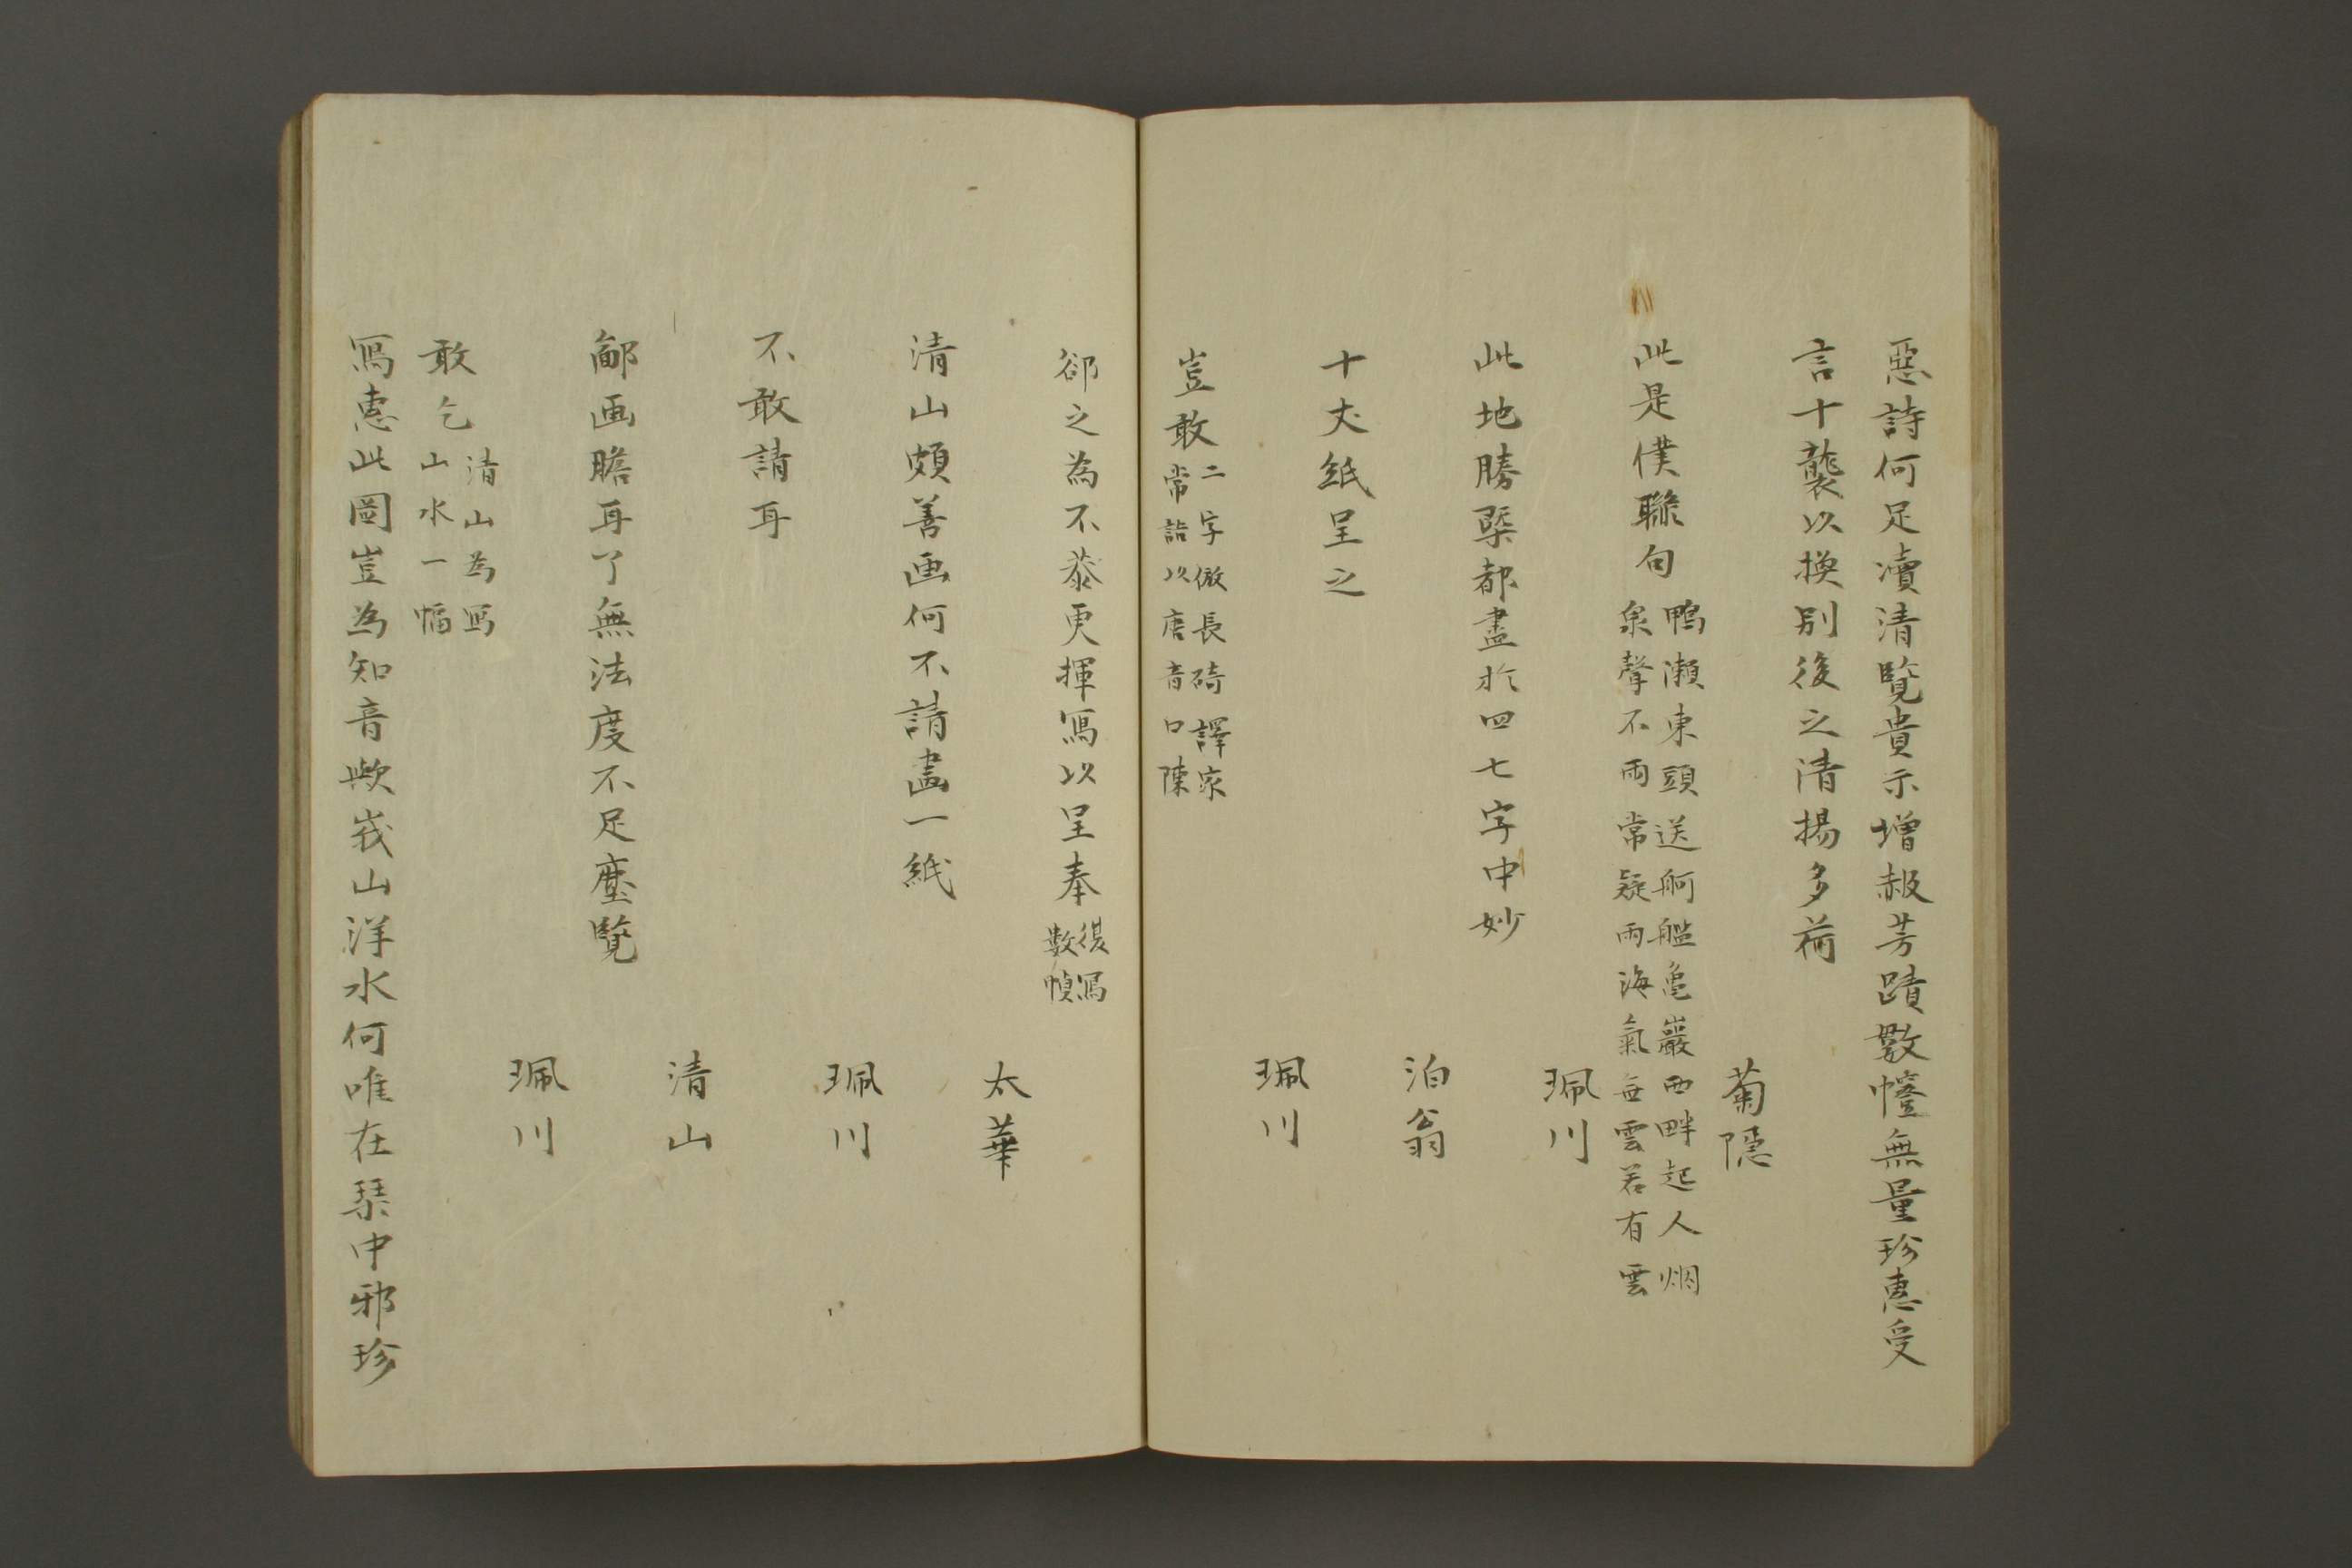 惡詩何足瀆清覽貴示增赧芳蹟數幢無量珍惠受
言十襲以換別後之清揚多荷
菊隱
此是僕聯句
鴨瀬東頭送舸艦亀巖西畔起人烟
泉聲不雨常疑雨海氣無雲若有雲
珮川
此地勝槩都盡於四七字中妙
泊翁
十丈紙呈之
珮川
豈敢
二字倣長碕譯家
常話以唐音口陳
郤之為不恭更揮寫以呈奉
復寫
數幀
太華
清山頗善画何不請畫一紙
珮川
不敢請耳
清山
鄙画瞻耳了無法度不足塵覽
珮川
敢乞
清山為写
山水一幅
寫惠此圖豈為知音歟峩山洋水何唯在琹中邪珍